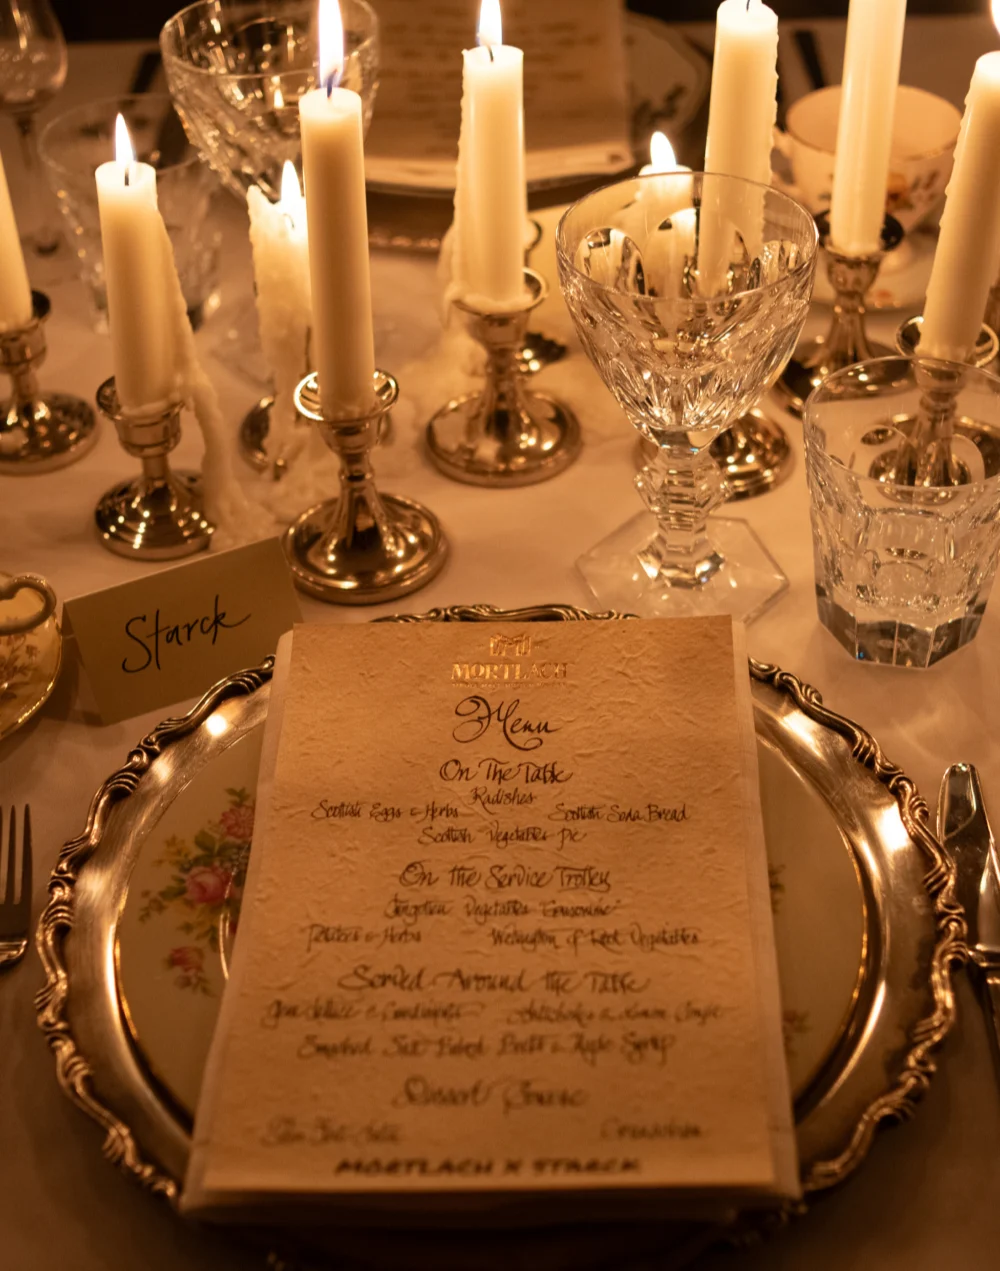 Starck
MORTLACH
Menu
On The Table
Radishes
Scottish Eggs & Herbs Scottish Soda Bread
Scottish Vegetables Pie
On the Service Trolley
Vegetables
Potatoes & Herbs Wellington of Root Vegetables
Served Around the Table
Gem Lettuce & Condiments Artichokes & Lemon
Smoked Salt Baked Beets &
Dessert Course
MORTLACH X STARCK